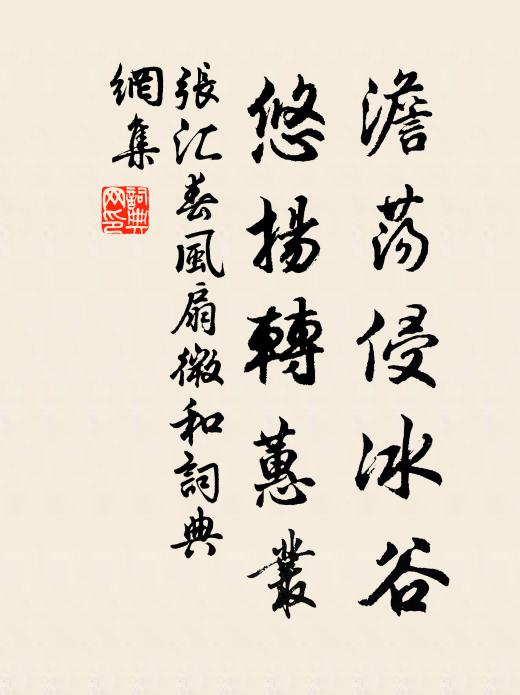 澹荡侵冰谷
悠揚轉蕙叢
張汇春風扇微和詞典
網集
詞典
网印